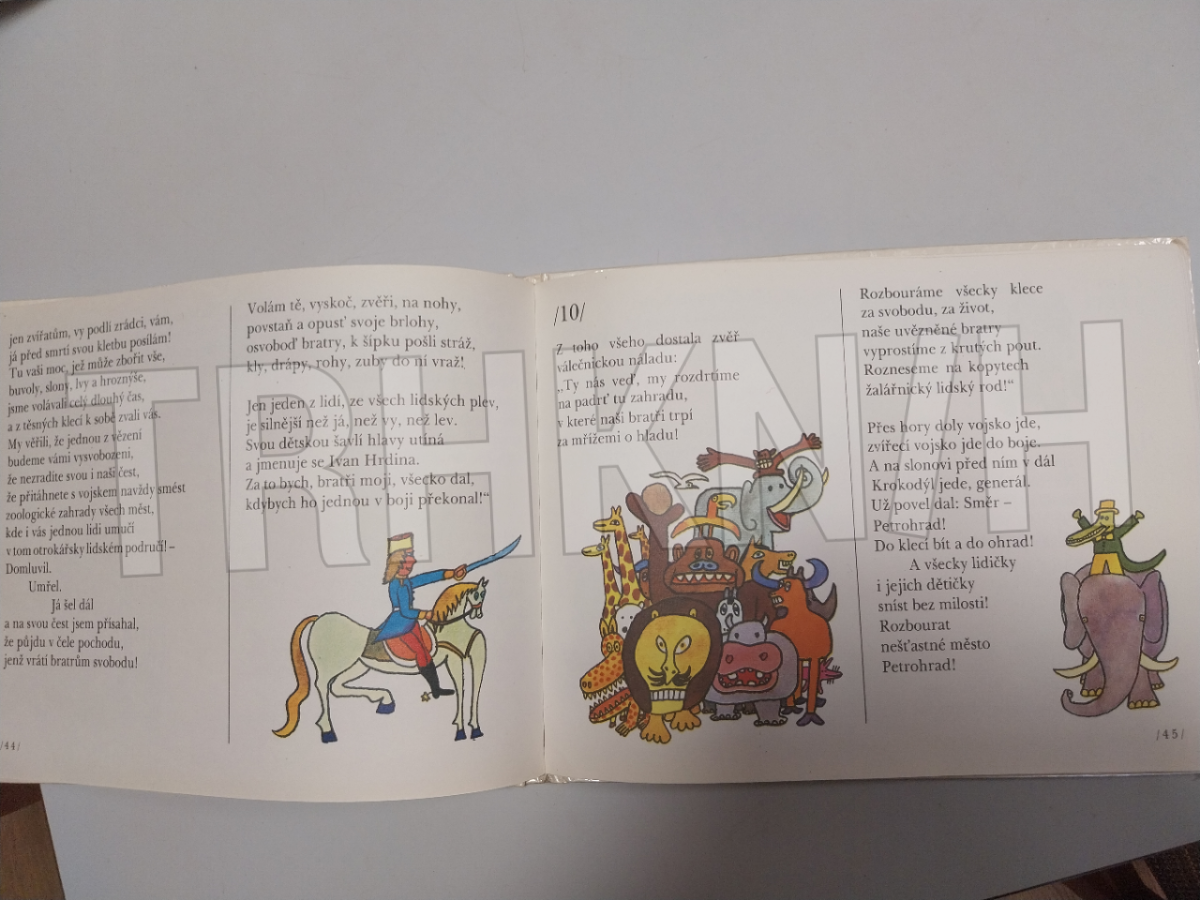 jen zvířatům, vy podlí zrádci, vám,
já před smrtí svou kletbu posílám!
Tu vaši moc, jež může zbořit vše,
buvoly, slony, lvy a hroznýše,
jsme volávali celý dlouhý čas,
a z těsných klecí k sobě zvali vás.
My věřili, že jednou z vězení
budeme vámi vysvobozeni,
že nezradíte svou i naši čest,
že přitáhnete s vojskem navždy smést
zoologické zahrady všech měst,
kde i vás jednou lidi umučí
v tom otrokářsky lidském područí! –
Domluvil.
Umřel.
Já šel dál
a na svou čest jsem přísahal,
že půjdu v čele pochodu,
jenž vrátí bratrům svobodu!
/44/
Volám tě, vyskoč, zvěři, na nohy,
povstaň a opusť svoje brlohy,
osvoboď bratry, k šípku pošli stráž,
kly, drápy, rohy, zuby do ní vraž!
Jen jeden z lidí, ze všech lidských plev,
je silnější než já, než vy, než lev.
Svou dětskou šavlí hlavy utíná
a jmenuje se Ivan Hrdina.
Za to bych, bratři moji, všecko dal,
kdybych ho jednou v boji překonal!“
/10/
Z toho všeho dostala zvěř
válečnickou náladu:
„Ty nás veď, my rozdrtíme
na padrť tu zahradu,
v které naši bratři trpí
za mřížemi o hladu!
Rozbouráme všecky klece
za svobodu, za život,
naše uvězněné bratry
vyprostíme z krutých pout.
Rozneseme na kopytech
žalářnický lidský rod!“
Přes hory doly vojsko jde,
zvířecí vojsko jde do boje.
A na slonovi před ním v dál
Krokodýl jede, generál.
Už povel dal: Směr –
Petrohrad!
Do klecí bít a do ohrad!
A všecky lidičky
i jejich dětičky
sníst bez milosti!
Rozbourat
nešťastné město
Petrohrad!
/45/
TRHKNIH